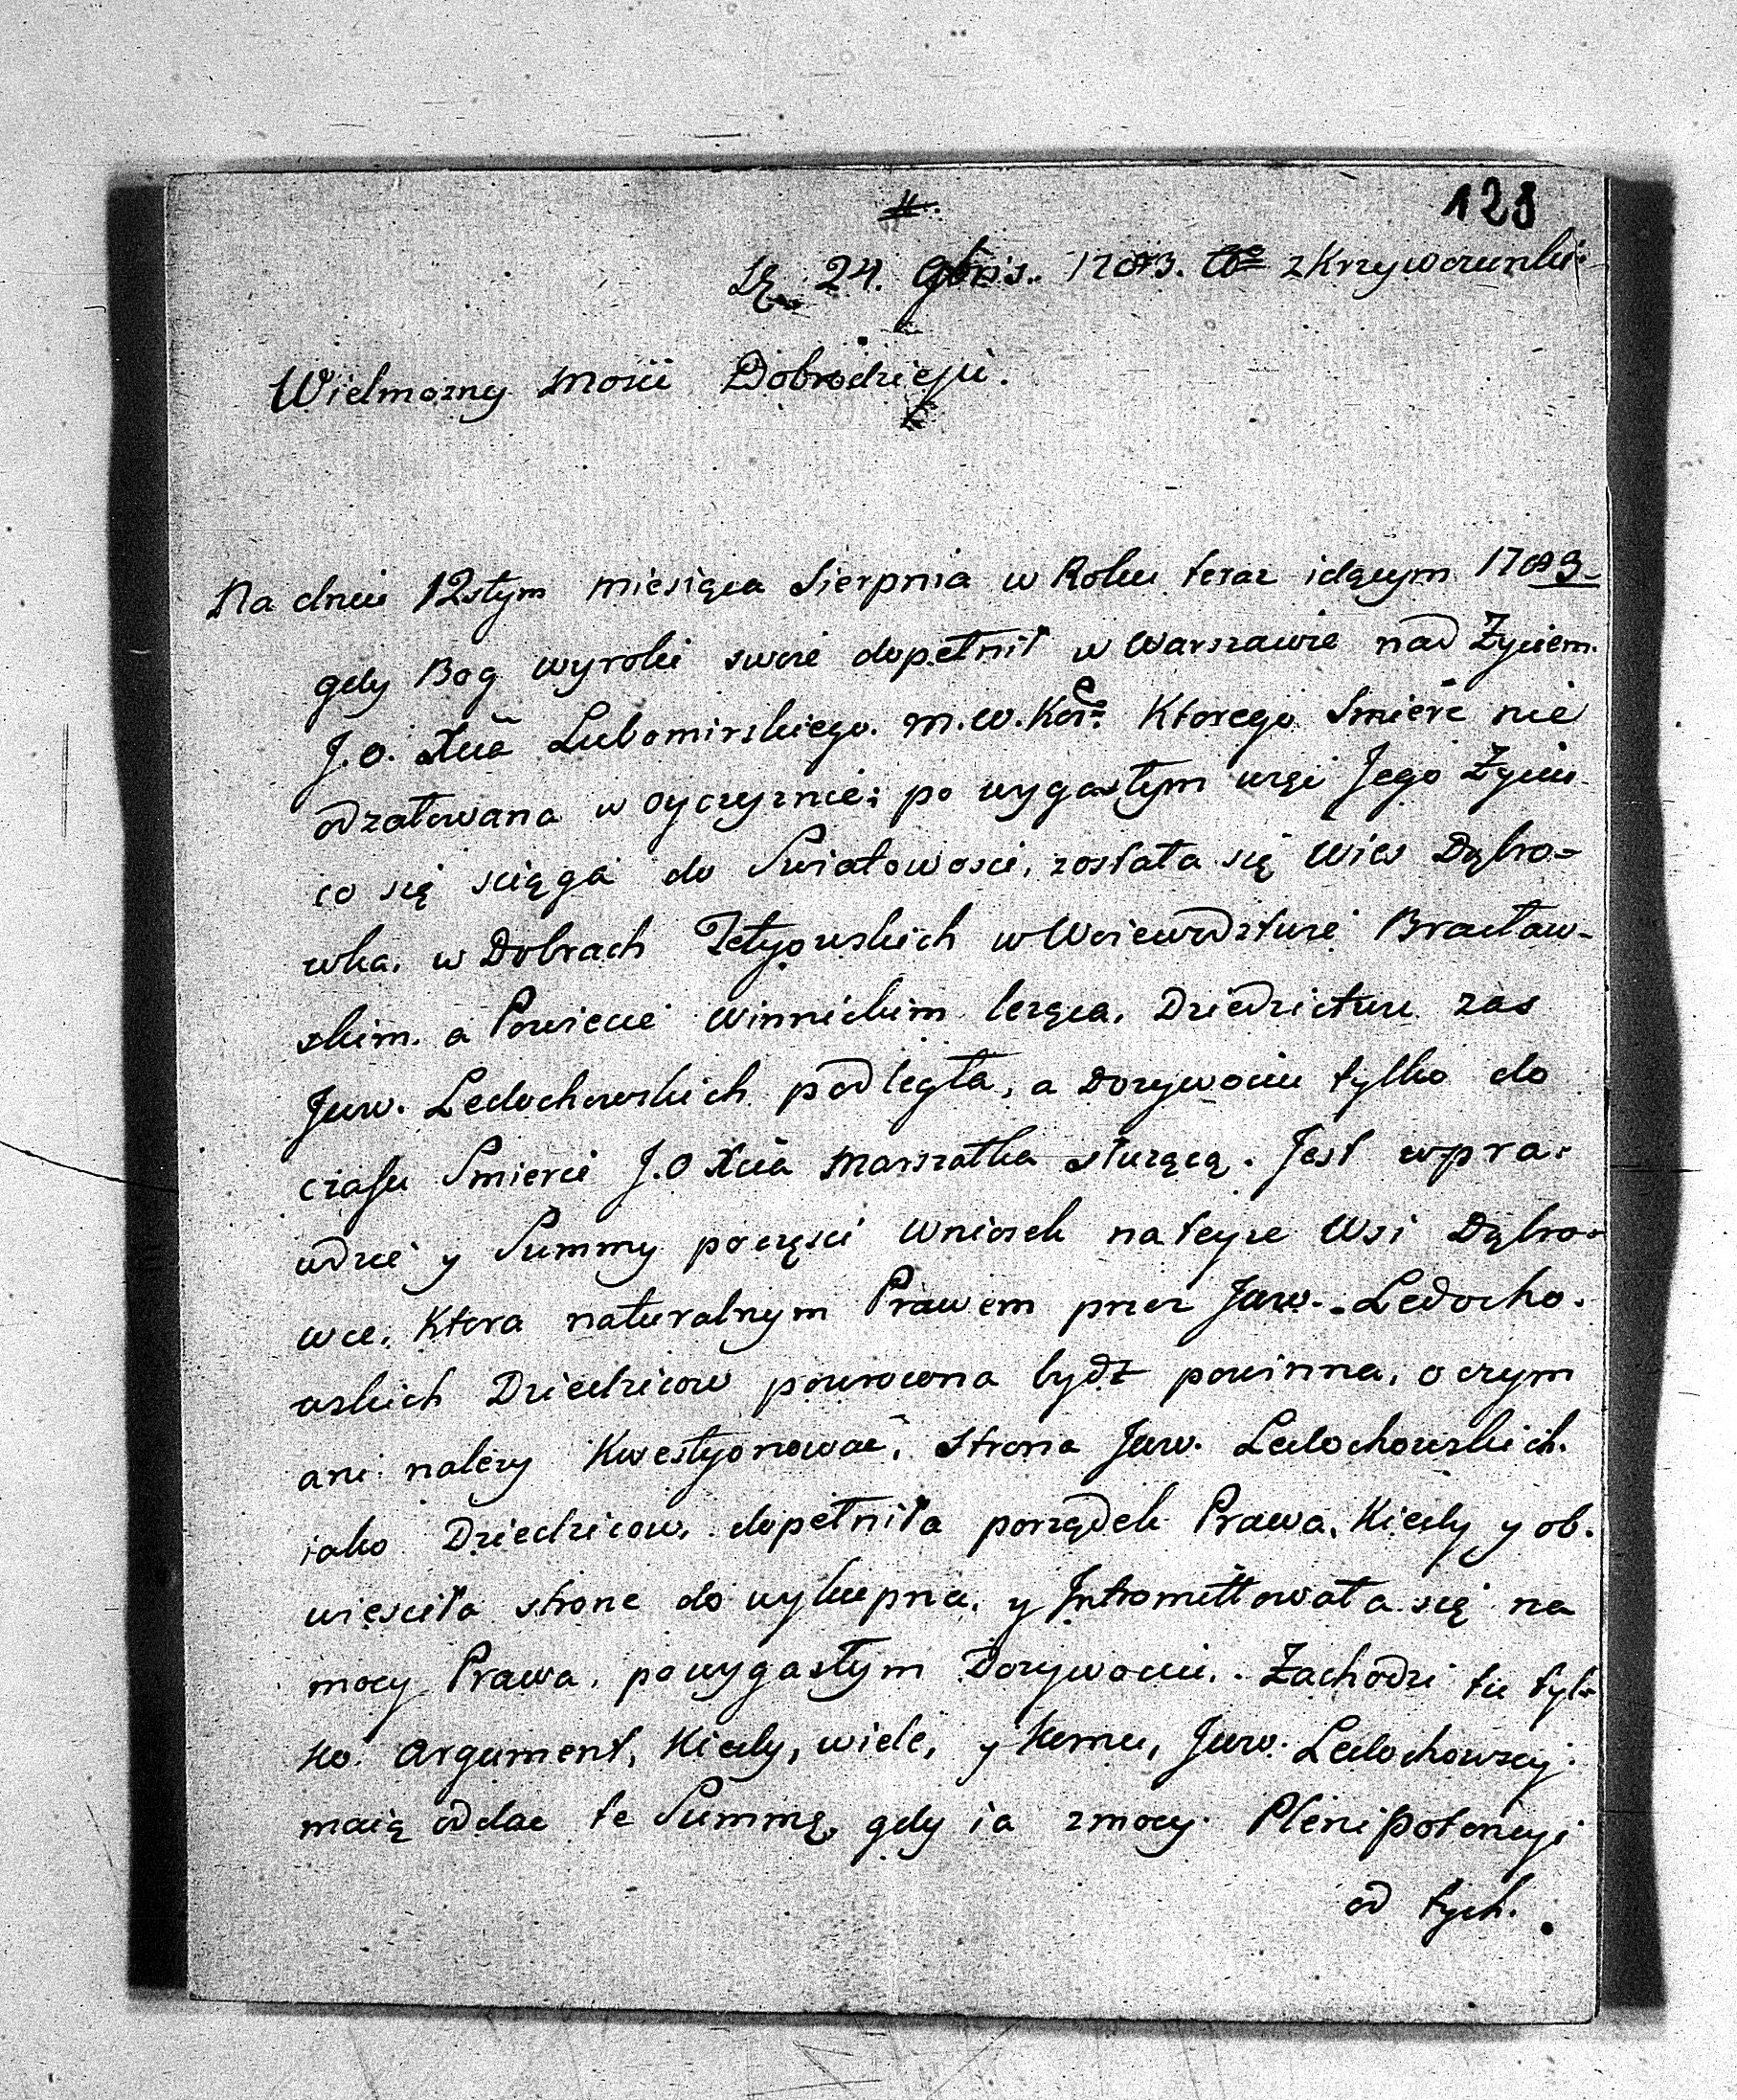 128
24. 9bris. 1783. z Krzywczunki
Wielmozny Mosci Dobrodzieju.
Na dniu 12stym miesiąca Sierpnia w Roku teraz idącym 1783.
gdy Bog wyroki swoie dopełnił w Warszawie nad Życiem
J.O. Xcia Lubomirskiego. M.W.Kor: Ktorego Smierć nie
odzałowana w Oyczyznie; po wygasłym wręi Jego Życiu
co się sciąga do Swiatowosci, została się Wies Dąbro=
wka. w Dobrach Tetyowskich w Woiewodztwie Bracław-
skim. a Powiecie Winnickim leząca, Dziedzictwu zas
Jww. Ledochowskich podległa, a Dozywociu tylko do
czasu Smierci J.O Xcia Marszałka słuzącą. Jest wpra=
wdzie y Summy poczęsci Wniosek nateyze Wsi Dąbro=
wce. Ktora naturalnym Prawem przez Jww. Ledocho-
wskich Dziedzicow powrocona bydź powinna, o czym
ani nalezy Kwestyonować, Strona Jww. Ledochowskich.
iako Dziedzicow. dopełniła porządek Prawa, Kiedy y ob-
wiesciła strone do wykupna, y Intromittowała się na
mocy Prawa, powygasłym Dozywociu. Zachodzi tu tyl=
ko Argument, Kiedy, wiele, y komu, Jww. Ledochowscy
maią oddac te Summę, gdy ia zmocy Plenipotencyi
od tych.